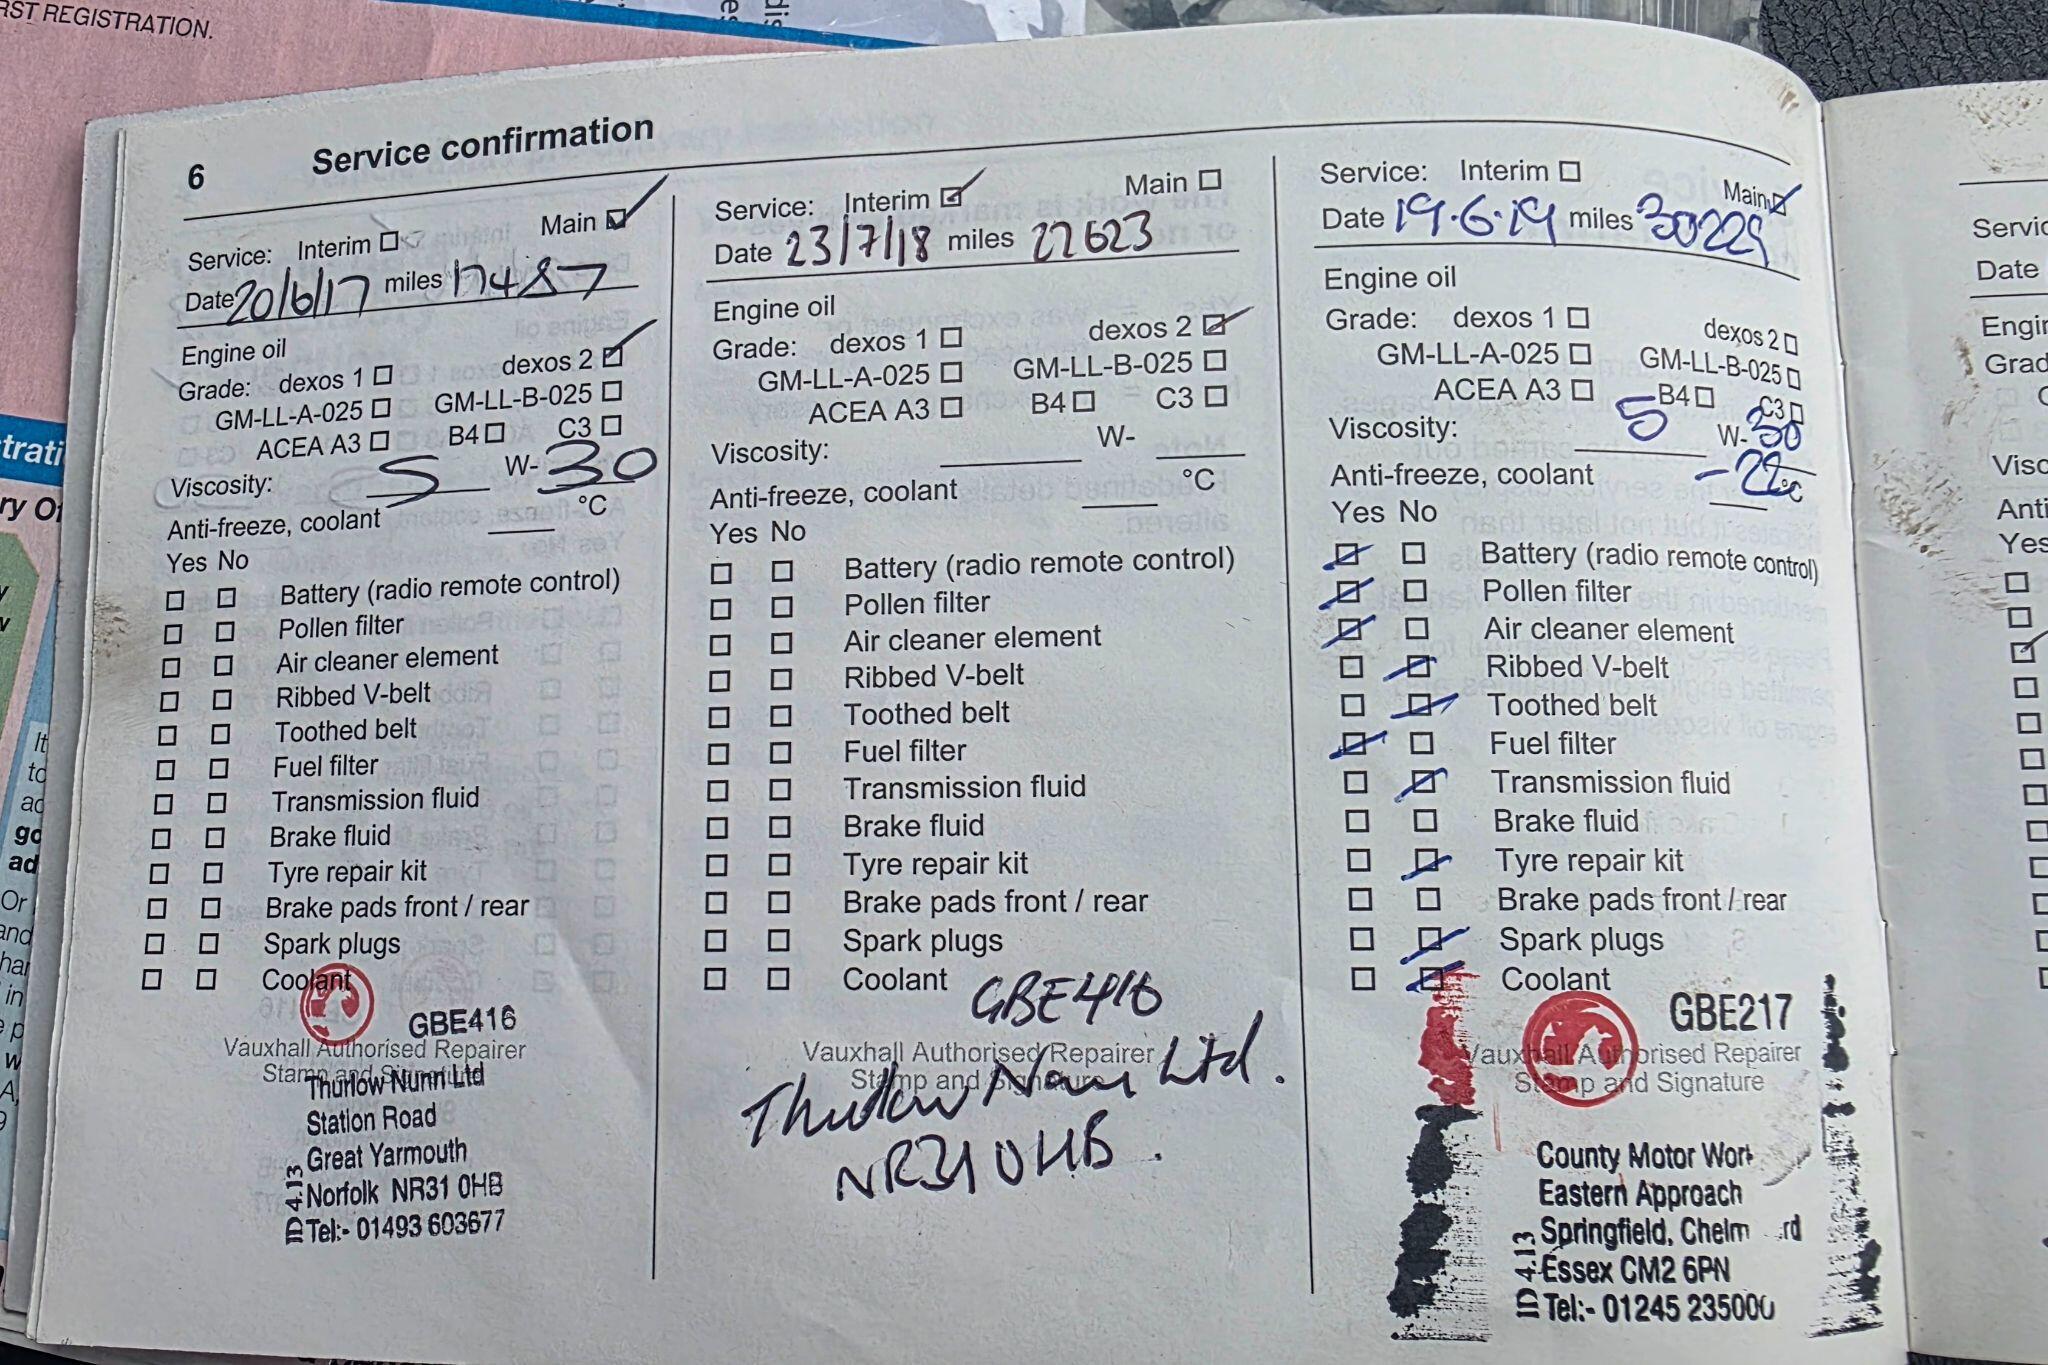 RST REGISTRATION.
6 Service confirmation
Service: Interim Main
Date 20/6/17 miles 17487
Engine oil
Grade: dexos 1 dexos 2
GM-LL-A-025 GM-LL-B-025
ACEA A3 B4 C3
Viscosity: 5 W-30
Anti-freeze, coolant °C
Yes No
Battery (radio remote control)
Pollen filter
Air cleaner element
Ribbed V-belt
Toothed belt
Fuel filter
Transmission fluid
Brake fluid
Tyre repair kit
Brake pads front / rear
Spark plugs
Coolant
GBE416
Vauxhall Authorised Repairer
Stamp and Signature
Thurlow Nunn Ltd
Station Road
Great Yarmouth
Norfolk NR31 0HB
Tel:- 01493 603677
ID 4.13
Service: Interim Main
Date 23/7/18 miles 22623
Engine oil
Grade: dexos 1 dexos 2
GM-LL-A-025 GM-LL-B-025
ACEA A3 B4 C3
Viscosity: W-
Anti-freeze, coolant °C
Yes No
Battery (radio remote control)
Pollen filter
Air cleaner element
Ribbed V-belt
Toothed belt
Fuel filter
Transmission fluid
Brake fluid
Tyre repair kit
Brake pads front / rear
Spark plugs
Coolant
GBE416
Vauxhall Authorised Repairer
Stamp and Signature
Thurlow Nunn Ltd.
NR31 0HB.
Service: Interim Main
Date 19.6.19 miles 30229
Engine oil
Grade: dexos 1 dexos 2
GM-LL-A-025 GM-LL-B-025
ACEA A3 B4 C3
Viscosity: 5 W-30
Anti-freeze, coolant -22°C
Yes No
Battery (radio remote control)
Pollen filter
Air cleaner element
Ribbed V-belt
Toothed belt
Fuel filter
Transmission fluid
Brake fluid
Tyre repair kit
Brake pads front / rear
Spark plugs
Coolant
GBE217
Vauxhall Authorised Repairer
Stamp and Signature
County Motor Work
Eastern Approach
Springfield, Chelm rd
Essex CM2 6PN
Tel:- 01245 235000
ID 4.13
Servic
Date
Engin
Grad
Visc
Anti
Yes